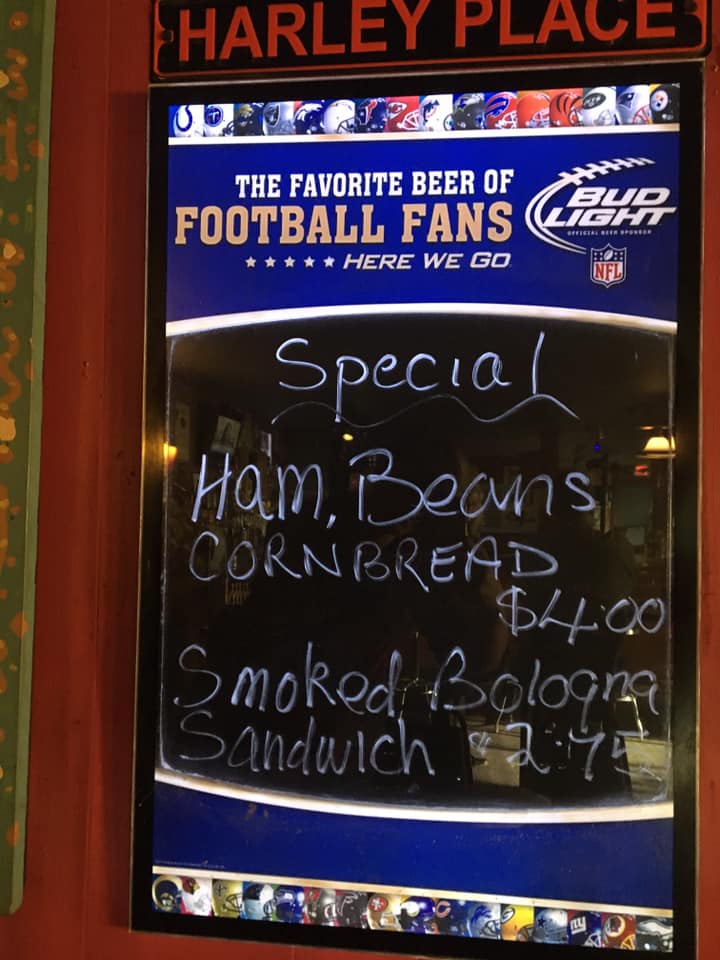 HARLEY PLACE
THE FAVORITE BEER OF
FOOTBALL FANS
HERE WE GO
BUD
LIGHT
OFFICIAL BEER SPONSOR
NFL
Special
Ham, Beans
CORNBREAD
$4.00
Smoked Bologna
Sandwich $2.75